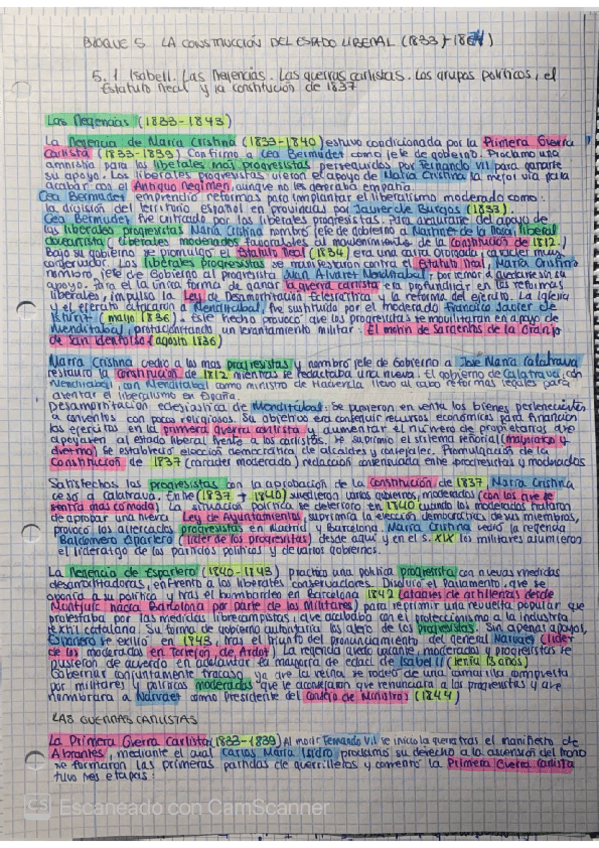 BLOQUE 5. LA CONSTRUCCIÓN DEL ESTADO LIBERAL (1833-1874)
5.1 Isabel II. Las Regencias. Las guerras carlistas. Los grupos políticos, el
Estatuto Real y la constitución de 1837
Las Regencias (1833-1843)
La Regencia de María Cristina (1833-1840) estuvo condicionada por la Primera Guerra
Carlista (1833-1839) Confirmo a Cea Bermúdez como jefe de gobierno. Proclamo una
amnistía para los liberales mas progresistas perseguidos por Fernando VII para ganarse
su apoyo. Los liberales progresistas vieron el apoyo de María Cristina la mejor vía para
acabar con el Antiguo Regimen, aunque no les generaba empatía.
Cea Bermudez emprendió reformas para implantar el liberalismo moderado como:
la división del territorio Español en provincias por Javier de Burgos (1833).
Cea Bermudez fue criticado por los liberales progresistas. Para asegurarse del apoyo de
los liberales progresistas María Cristina nombro jefe de gobierno a Martínez de la Rosa, liberal
doceañista (liberales moderados favorables al mantenimiento de la constitución de 1812.)
Bajo su gobierno se promulgo el Estatuto Real (1834) era una carta otorgada, caracter muy
conservador. Los liberales progresistas se manifestaron contra el Estatuto Real, María Cristina
nombro jefe de Gobierno al progresista Juan Álvarez Mendizábal, por temor a quedarse sin su
apoyo. Para el la única forma de ganar la guerra carlista era profundizar en las reformas
liberales, impulso la Ley de Desamortización Eclesiástica y la reforma del ejercito. La Iglesia
y el ejercito criticaron a Mendizábal, fue sustituido por el moderado Francisco Javier de
Isturiz (mayo 1836). Este hecho provocó que los progresistas se movilizaran en apoyo de
Mendizábal, protagonizando un levantamiento militar: El motín de Sargentos de la Granja
de San Ildefonso (agosto 1836)
María Cristina cedió a los mas progresistas y nombró jefe de Gobierno a José María Calatrava
restauro la constitución de 1812 mientras se redactaba una nueva. El gobierno de Calatrava, con
Mendizábal como ministro de Hacienda llevo al cabo reformas legales para
asentar el liberalismo en España.
Desamortización eclesiástica de Mendizábal: Se pusieron en venta los bienes pertenecientes
a conventos con pocos religiosos. Su objetivo era conseguir recursos económicos para financiar
los ejercitos en la primera guerra carlista y aumentar el número de propietarios que
apoyasen al estado liberal frente a los carlistas. Se suprimio el sistema señorial (mayorazgo y
diezmo) se estableció elección democratica de alcaldes y concejales. Promulgación de la
Constitución de 1837 (caracter moderado) redacción consensuada entre progresistas y moderados
Satisfechos los progresistas con la aprobación de la constitución de 1837, María Cristina
ceso a Calatrava. Entre (1837 y 1840) sucedieron varios gobiernos, moderados (con los que se
sentía mas comoda). La situación política se deterioro en 1840 cuando los moderados trataron
de aprobar una nueva Ley de Ayuntamientos, suprimía la elección democratica de sus miembros,
provocó los altercados progresistas en Madrid y Barcelona. María Cristina cedió la regencia
Baldomero Espartero (lider de los progresistas) desde aquí y en el s. XIX los militares asumieron
el liderazgo de los partidos políticos y de varios gobiernos.
La Regencia de Espartero (1840-1843) practico una politica progresista con nuevas medidas
desamortizadoras, enfrento a los liberales conservadores. Disolvió el Parlamento, que se
oponía a su política y tras el bombardeo en Barcelona 1842 (ataques de artilleria desde
Montjuic hacia Barcelona por parte de los militares) para reprimir una revuelta popular que
protestaba por las medidas librecambistas, que acababa con el proteccionismo a la industria
textil catalana. Su forma de gobierno autoritaria los alejo de los progresistas. Sin apenas apoyos,
Espartero se exilio en 1843, tras el triunfo del pronunciamiento del general Narvaez (lider
de los moderados en Torrejón de Ardoz). La regencia quedo vacante, moderados y progresistas se
pusieron de acuerdo en adelantar la mayoría de edad de Isabel II (tenia 13 años)
Gobernar conjuntamente fracaso, ya que la reina se rodeo de una camarilla compuesta
por militares y políticos moderados que le aconsejaron que renunciara a los progresistas y que
nombrara a Narvaez como Presidente del Consejo de Ministros (1844)
LAS GUERRAS CARLISTAS
La Primera Guerra Carlista (1833-1839) Al morir Fernando VII se inicio la guerra tras el manifiesto de
Abrantes, mediante el cual Carlos María Isidro proclamo su derecho a la ascensión del trono
se formaron las primeras partidas de guerrilleros y comento la Primera Guerra Carlista
tuvo tres etapas:
CS Escaneado con CamScanner